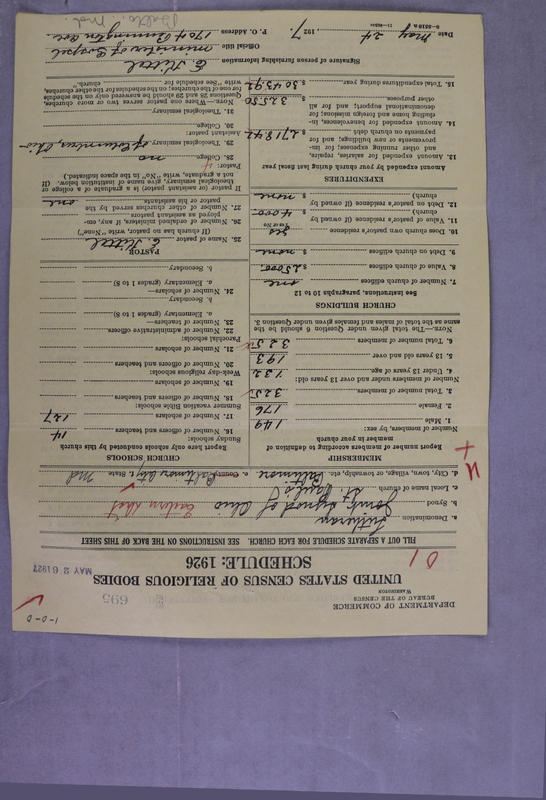 1-0-0
DEPARTMENT OF COMMERCE
BUREAU OF THE CENSUS
WASHINGTON
695
UNITED STATES CENSUS OF RELIGIOUS BODIES
SCHEDULE: 1926
MAY 26 1927
FILL OUT A SEPARATE SCHEDULE FOR EACH CHURCH. SEE INSTRUCTIONS ON THE BACK OF THIS SHEET
a. Denomination Lutheran
b. Synod Joint Synod of Ohio Eastern Dist
c. Local name of church St. Paul's
d. City, town, village, or township, etc. Baltimore e. County Baltimore City State Md
MEMBERSHIP
Report number of members according to definition of
member in your church
Number of members, by sex:
1. Male 149
2. Female 176
3. Total number of members 325
Number of members under and over 13 years old:
4. Under 13 years of age 132
5. 13 years old and over 193
6. Total number of members 325
NOTE.—The total given under Question 6 should be the
same as the total of males and females given under Question 3.
CHURCH BUILDINGS
See instructions, paragraphs 10 to 12
7. Number of church edifices one
8. Value of church edifices $ 25000.
9. Debt on church edifices $ none
10. Does church own pastor's residence yes
Yes or No
11. Value of pastor's residence (if owned by
church) $ 4000
12. Debt on pastor's residence (if owned by
church) $ none
EXPENDITURES
Amount expended by your church during last fiscal year
13. Amount expended for salaries, repairs,
and other running expenses; for improvements or new buildings; and for
payments on church debt $ 2718.42
14. Amount expended for benevolences, including home and foreign missions; for
denominational support; and for all
other purposes $ 325.50
15. Total expenditures during year $ 3043.92
CHURCH SCHOOLS
Report here only schools conducted by this church
Sunday schools:
16. Number of officers and teachers 14
17. Number of scholars 127
Summer vacation Bible schools:
18. Number of officers and teachers
19. Number of scholars
Week-day religious schools:
20. Number of officers and teachers
21. Number of scholars
Parochial schools:
22. Number of administrative officers
23. Number of teachers—
a. Elementary (grades 1 to 8)
b. Secondary
24. Number of scholars—
a. Elementary (grades 1 to 8)
b. Secondary
PASTOR
25. Name of pastor
(If church has no pastor, write "None")
26. Number of ordained ministers, if any, employed as assistant pastors
27. Number of other churches served by the
pastor or his assistants one
If pastor (or assistant pastor) is a graduate of a college or
theological seminary, give name of institution below. (If
not a graduate, write "No" in the space indicated.)
Pastor:
28. College no
29. Theological seminary of Columbus, Ohio
Assistant pastor:
30. College
31. Theological seminary
NOTE.—Where one pastor serves two or more churches,
Questions 28 and 29 should be answered only on the schedule
for one of the churches; on the schedules for the other churches,
write "See schedule for church."
Signature of person furnishing information
Official title minister of Gospel
P. O. Address
Balto. Md.
Date May 24, 1927.